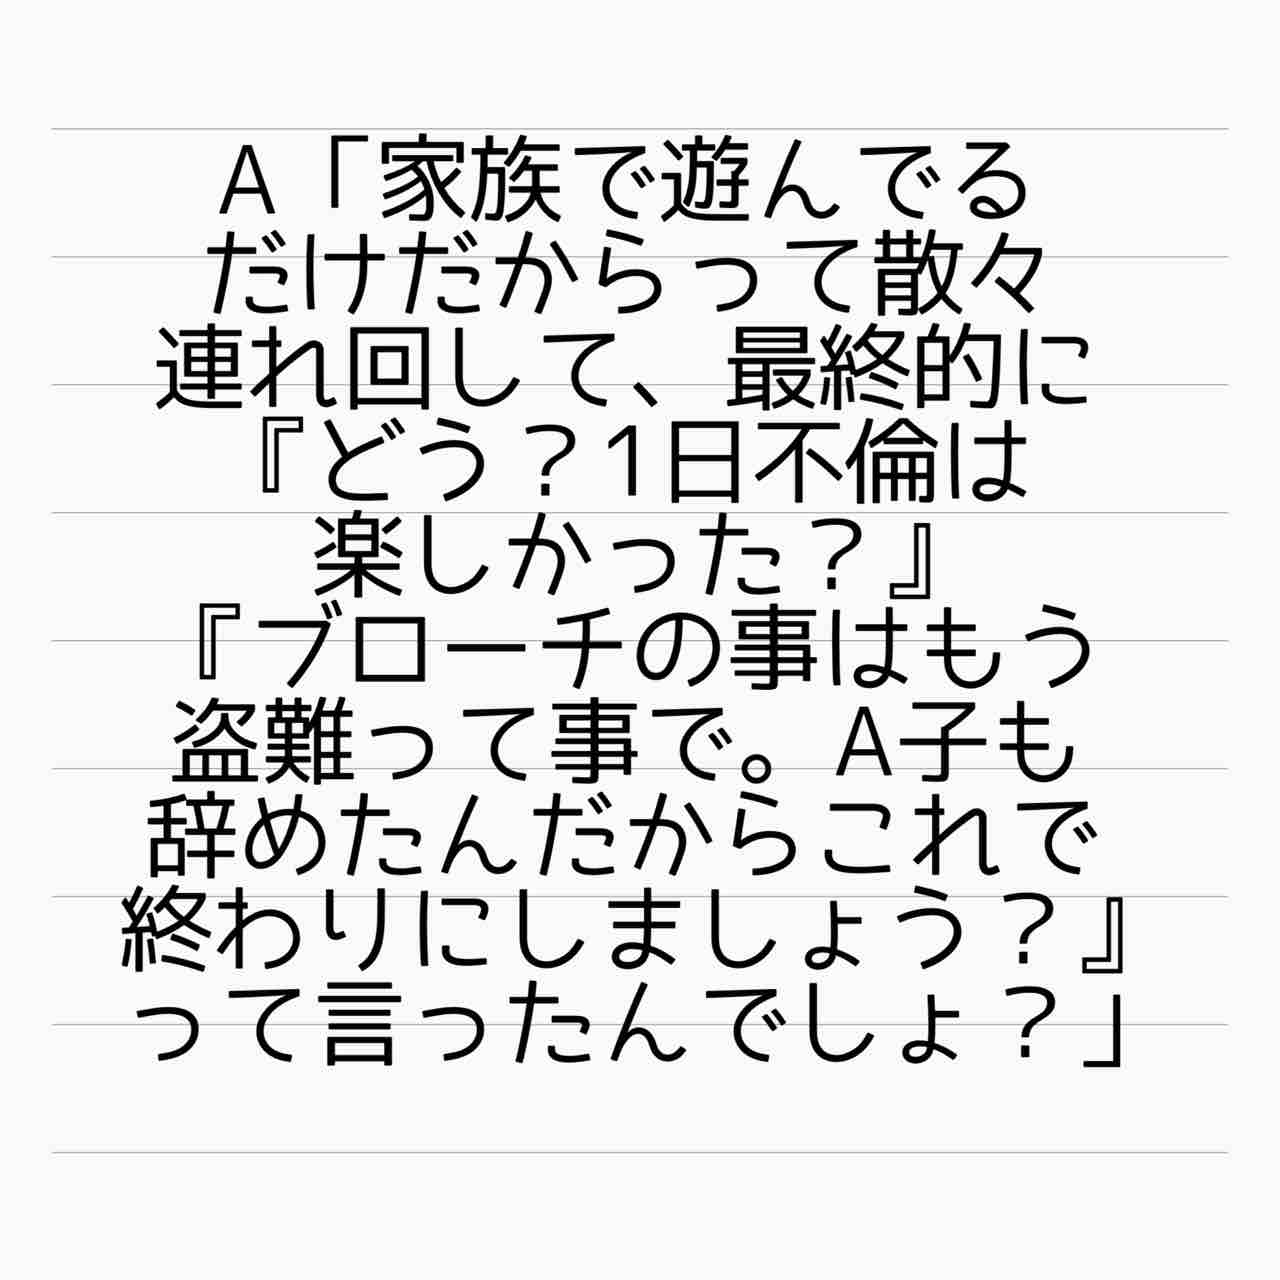 A「家族で遊んでる
だけだからって散々
連れ回して、最終的に
『どう？1日不倫は
楽しかった？』
『ブローチの事はもう
盗難って事で。A子も
辞めたんだからこれで
終わりにしましょう？』
って言ったんでしょ？」